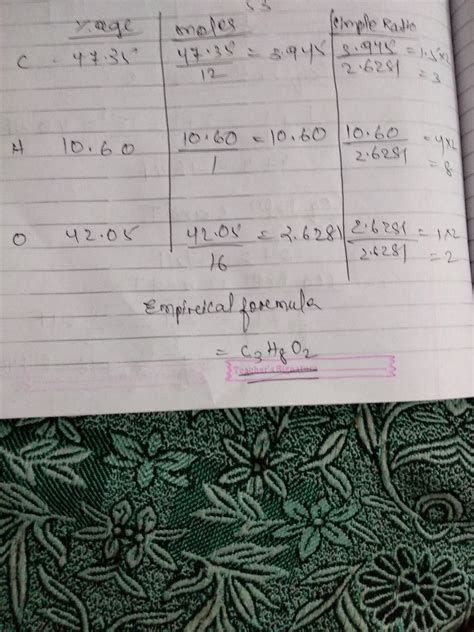 %age moles Simple Ratio
C 47.35 47.35/12 = 3.945 3.945/2.6281 = 1.5×2
= 3
H 10.60 10.60/1 = 10.60 10.60/2.6281 = 4×2
= 8
O 42.05 42.05/16 = 2.6281 2.6281/2.6281 = 1×2
= 2
Empireical formula
= C3H8O2
Teacher's Signature